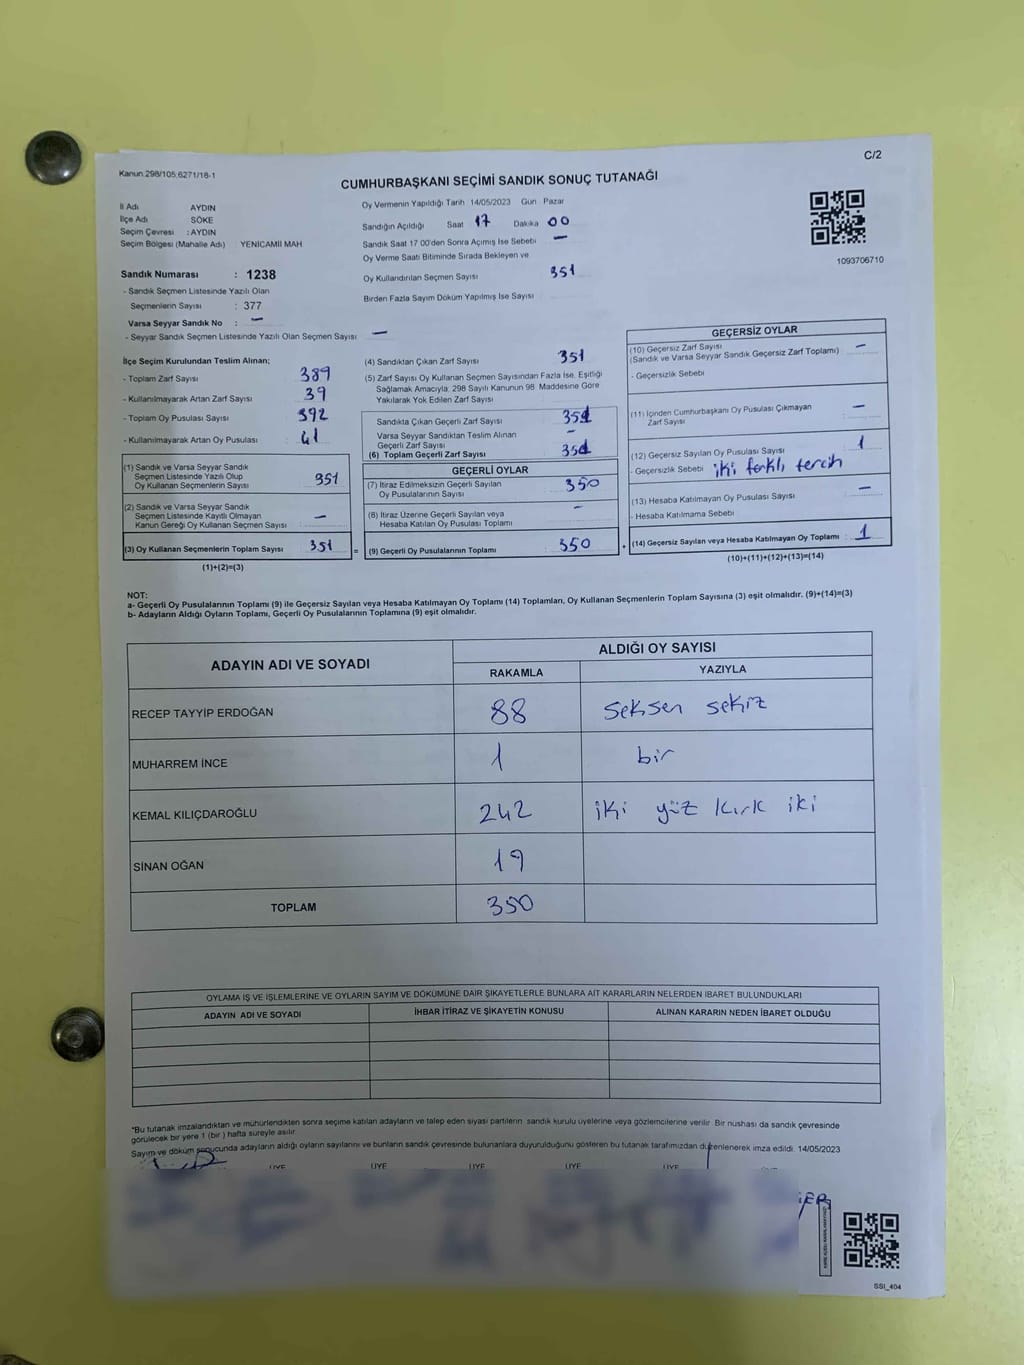 Kanun:298/105;6271/18-1
C/2
CUMHURBAŞKANI SEÇİMİ SANDIK SONUÇ TUTANAĞI
İl Adı AYDIN
İlçe Adı SÖKE
Seçim Çevresi : AYDIN
Seçim Bölgesi (Mahalle Adı) YENİCAMİİ MAH
Sandık Numarası : 1238
- Sandık Seçmen Listesinde Yazılı Olan
Seçmenlerin Sayısı : 377
Varsa Seyyar Sandık No : –
- Seyyar Sandık Seçmen Listesinde Yazılı Olan Seçmen Sayısı –
Oy Vermenin Yapıldığı Tarih 14/05/2023 Gün Pazar
Sandığın Açıldığı Saat 17 Dakika 00
Sandık Saat 17 00'den Sonra Açımış İse Sebebi –
Oy Verme Saati Bitiminde Sırada Bekleyen ve
Oy Kullandırılan Seçmen Sayısı 351
Birden Fazla Sayım Döküm Yapılmış İse Sayısı
1093706710
İlçe Seçim Kurulundan Teslim Alınan;
- Toplam Zarf Sayısı 389
- Kullanılmayarak Artan Zarf Sayısı 39
- Toplam Oy Pusulası Sayısı 392
- Kullanılmayarak Artan Oy Pusulası 41
(1) Sandık ve Varsa Seyyar Sandık
Seçmen Listesinde Yazılı Olup
Oy Kullanan Seçmenlerin Sayısı 351
(2) Sandık ve Varsa Seyyar Sandık
Seçmen Listesinde Kayıtlı Olmayan
Kanun Gereği Oy Kullanan Seçmen Sayısı –
(3) Oy Kullanan Seçmenlerin Toplam Sayısı 351 =
(1)+(2)=(3)
(4) Sandıktan Çıkan Zarf Sayısı 351
(5) Zarf Sayısı Oy Kullanan Seçmen Sayısından Fazla İse, Eşitliği
Sağlamak Amacıyla, 298 Sayılı Kanunun 98 Maddesine Göre
Yakılarak Yok Edilen Zarf Sayısı
Sandıkta Çıkan Geçerli Zarf Sayısı 351
Varsa Seyyar Sandıktan Teslim Alınan
Geçerli Zarf Sayısı –
(6) Toplam Geçerli Zarf Sayısı 351
GEÇERLİ OYLAR
(7) İtiraz Edilmeksizin Geçerli Sayılan
Oy Pusulalarının Sayısı 350
(8) İtiraz Üzerine Geçerli Sayılan veya
Hesaba Katılan Oy Pusulası Toplamı –
(9) Geçerli Oy Pusulalarının Toplamı 350 +
GEÇERSİZ OYLAR
(10) Geçersiz Zarf Sayısı
(Sandık ve Varsa Seyyar Sandık Geçersiz Zarf Toplamı) –
- Geçersizlik Sebebi
(11) İçinden Cumhurbaşkanı Oy Pusulası Çıkmayan
Zarf Sayısı –
(12) Geçersiz Sayılan Oy Pusulası Sayısı 1
- Geçersizlik Sebebi iki farklı tercih
(13) Hesaba Katılmayan Oy Pusulası Sayısı –
- Hesaba Katılmama Sebebi
(14) Geçersiz Sayılan veya Hesaba Katılmayan Oy Toplamı : 1
(10)+(11)+(12)+(13)=(14)
NOT:
a- Geçerli Oy Pusulalarının Toplamı (9) ile Geçersiz Sayılan veya Hesaba Katılmayan Oy Toplamı (14) Toplamları, Oy Kullanan Seçmenlerin Toplam Sayısına (3) eşit olmalıdır. (9)+(14)=(3)
b- Adayların Aldığı Oyların Toplamı, Geçerli Oy Pusulalarının Toplamına (9) eşit olmalıdır.
ADAYIN ADI VE SOYADI
ALDIĞI OY SAYISI
RAKAMLA YAZIYLA
RECEP TAYYİP ERDOĞAN 88 seksen sekiz
MUHARREM İNCE 1 bir
KEMAL KILIÇDAROĞLU 242 iki yüz kırk iki
SİNAN OĞAN 19
TOPLAM 350
OYLAMA İŞ VE İŞLEMLERİNE VE OYLARIN SAYIM VE DÖKÜMÜNE DAİR ŞİKAYETLERLE BUNLARA AİT KARARLARIN NELERDEN İBARET BULUNDUKLARI
ADAYIN ADI VE SOYADI İHBAR İTİRAZ VE ŞİKAYETİN KONUSU ALINAN KARARIN NEDEN İBARET OLDUĞU
*Bu tutanak imzalandıktan ve mühürlendikten sonra seçime katılan adayların ve talep eden siyasi partilerin sandık kurulu üyelerine veya gözlemcilerine verilir. Bir nüshası da sandık çevresinde
görülecek bir yere 1 (bir ) hafta süreyle asılır.
Sayım ve döküm sonucunda adayların aldığı oyların sayılarını ve bunların sandık çevresinde bulunanlara duyurulduğunu gösteren bu tutanak tarafımızdan düzenlenerek imza edildi. 14/05/2023
ÜYE ÜYE ÜYE ÜYE ÜYE
SSI_404